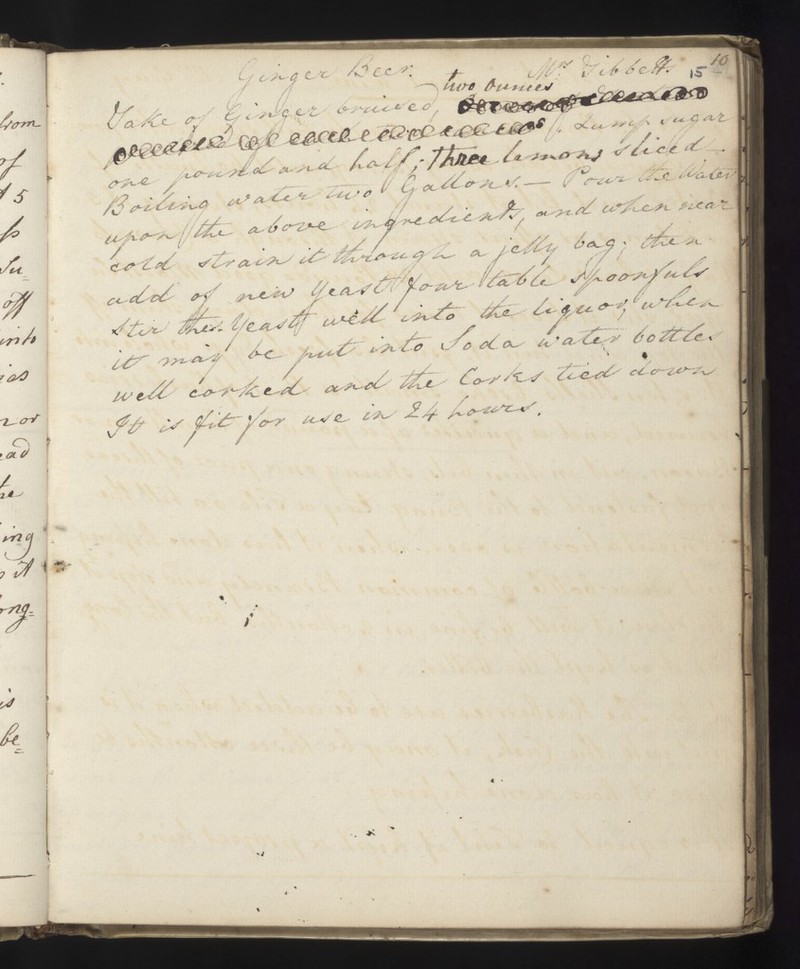 Ginger Beer. Mrs Tibbett. 10
15
two ounces
Take of Ginger bruised,
Lump sugar
one pound and half; three lemons sliced —
Boiling water two Gallons. — Pour the Water
upon the above ingredients, and when near
cold strain it through a jelly bag; then
add of new Yeast four table spoonfuls
Stir the Yeast well into the liquor, when
it may be put into Soda water bottles
well corked and the Corks tied down
It is fit for use in 24 hours.
from
of
5
off
into
ead
ing
it
ong=
is
be=